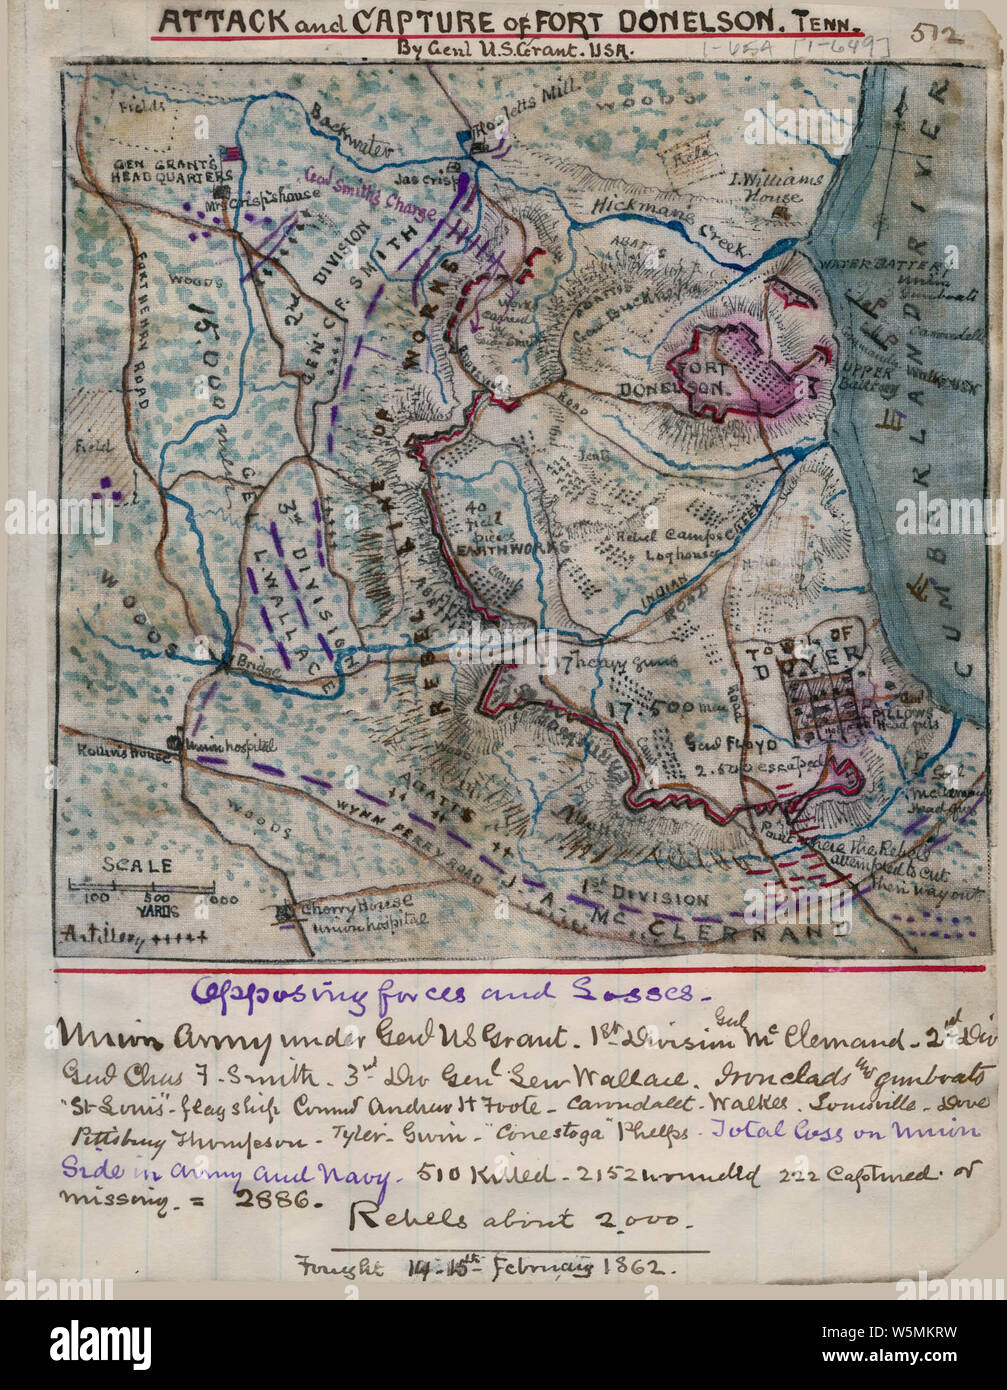 ATTACK and CAPTURE of FORT DONELSON. TENN.
By Genl U.S. Grant. USA.
512
Fields
Backwater
Rowletts Mill.
WOODS
GEN GRANT'S
HEADQUARTERS
Mrs Crisp's house
Jas Crisp
Genl Smith's Charge
I. Williams
House
Hickmans Creek
ABATIS
ABATIS
Genl Buckner
WATER BATTERY
Union
Gunboats
Carondelet
UPPER
Battery
FORT
DONELSON.
CUMBERLAND RIVER
WOODS
FORT HENRY ROAD
15.000 men
2nd DIVISION
GEN' C.F. SMITH
Works
captured
by
Genl Smith
LINE OF WORKS
REBEL
ROAD
Field
3rd DIVISION
GEN L WALLACE
40
field
pieces
EARTHWORKS
Camp
Tents
Rebel Camps
Log houses
INDIAN CREEK
ROAD
WOODS
Bridge
17 heavy guns
17.500 men
TOWN OF
DOVER
Genl
PILLOWS
Head qrs
Genl FLOYD
2.500 escaped
ROAD
Camp
Rollins House
Union hospital
WOODS
WOODS
ABATTS
WYNN FERRY ROAD
Genl
McClernand
Head qrs
Point where the Rebels
attempted to cut
their way out
1st DIVISION
J. A. McCLERNAND
SCALE
100 500 1000
YARDS
Artillery +++++
Cherry House
Union hospital
Opposing forces and Losses.
Union Army under Genl US Grant. 1st Division Genl McClernand. 2nd Div
Genl Chas F. Smith. 3rd Div Genl Lew Wallace. Ironclads and gunboats
"St Louis" - flag ship Commr Andrew H Foote - Carondalet. Walke. Louisville - Dove
Pittsburg Thompson - Tyler - Gwin - "Conestoga" Phelps. Total loss on Union
Side in army and Navy. 510 Killed. 2152 wounded 222 Captured. or
missing. = 2886.
Rebels about 2,000.
Fought 14-15th February 1862.
alamy
alamy
Image ID: W5MKRW
www.alamy.com